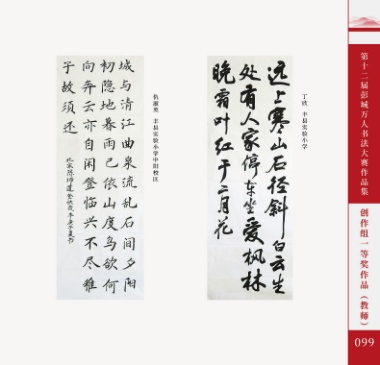 第十二届彭城万人书法大赛作品集
创作组一等奖作品（教师）
099
丁欣 丰县实验小学
远上寒山石径斜白云生
处有人家停车坐爱枫林
晚霜叶红于二月花
丰县实验小学中阳校区
城与清江曲泉流乱石间夕阳
初隐地暮霭已依山度鸟欲何
向奔云亦自闲登临兴不尽稚
子故须还
北宋陈师道登快哉亭